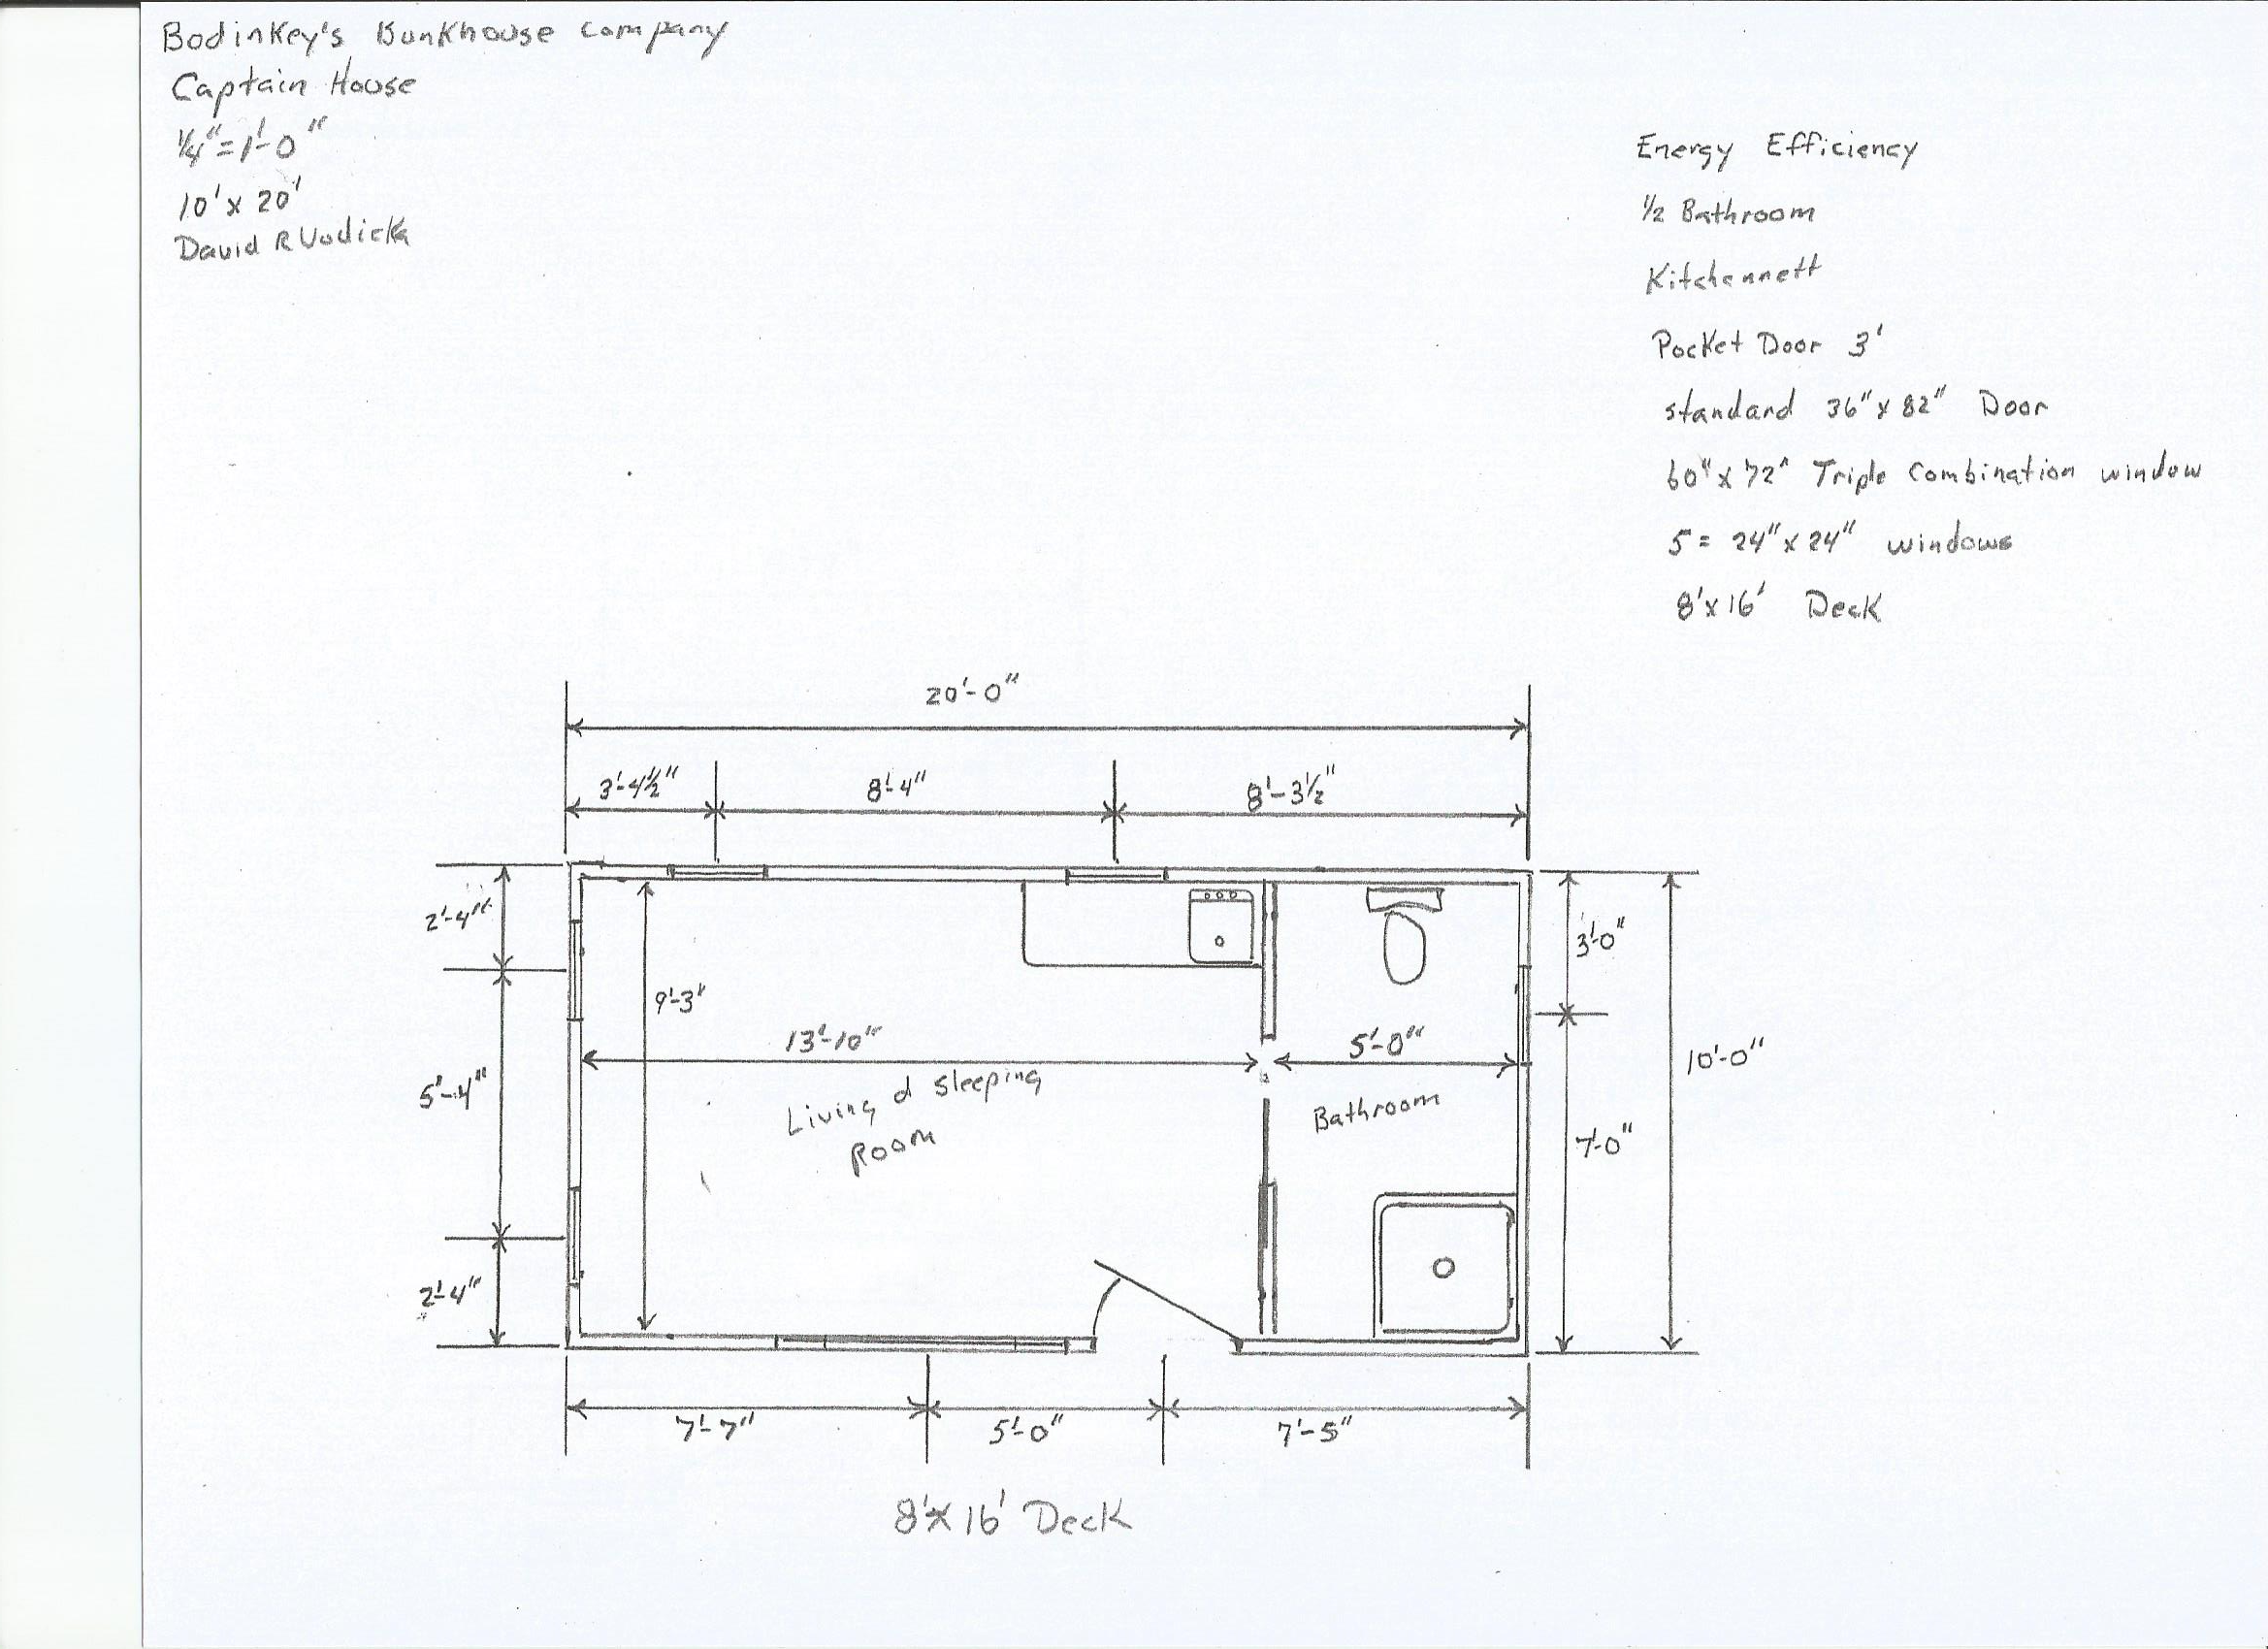 Bodinkey's Bunkhouse Company
Captain House
1/4"=1'-0"
10'x20'
David R Vodicka
Energy Efficiency
1/2 Bathroom
Kitchennett
Pocket Door 3'
standard 36"x82" Door
60"x72" Triple Combination window
5= 24"x24" windows
8'x16' Deck
20'-0"
3'-4½"
8'-4"
8'-3½"
2'-4"
3'-0"
9'-3"
13'-10"
5'-0"
10'-0"
5'-4"
Living & Sleeping
Room
Bathroom
7'-0"
2'-4"
7'-7"
5'-0"
7'-5"
8'x16' Deck